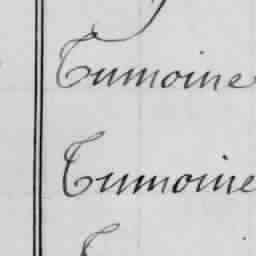 Tumoine
Tumoine